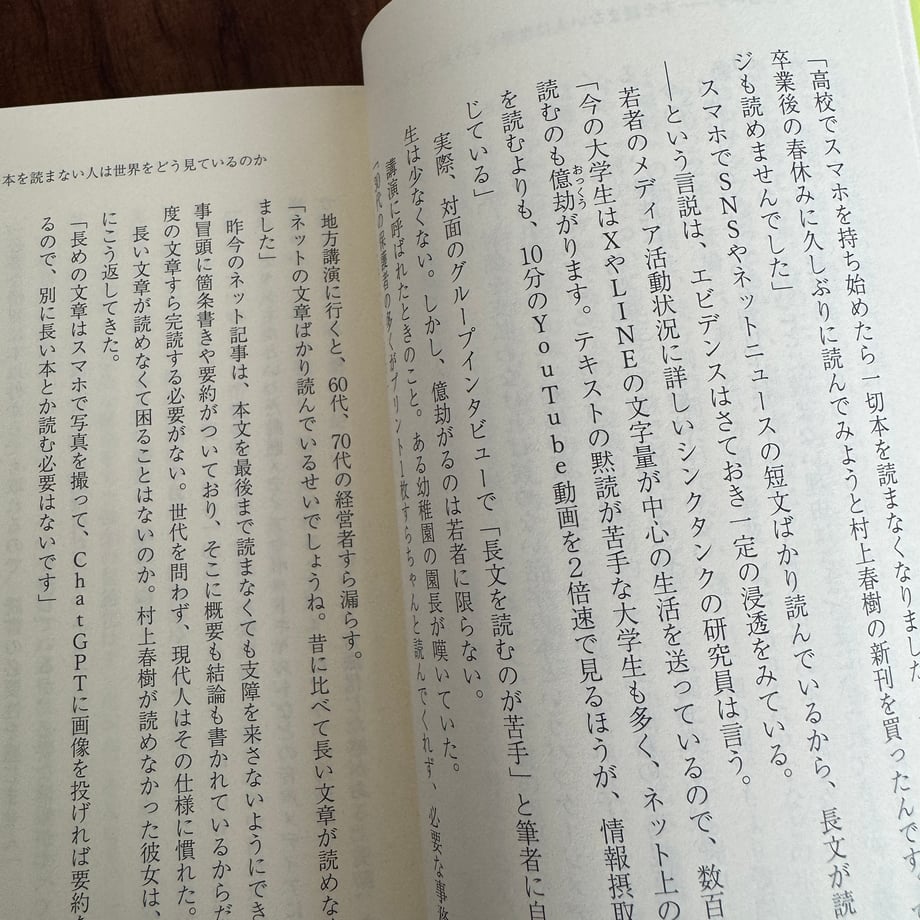 「高校でスマホを持ち始めたら一切本を読まなくなりました
卒業後の春休みに久しぶりに読んでみようと村上春樹の新刊を買ったんです
ジも読めませんでした」
スマホでSNSやネットニュースの短文ばかり読んでいるから、長文が読
――という言説は、エビデンスはさておき一定の浸透をみている。
若者のメディア活動状況に詳しいシンクタンクの研究員は言う。
「今の大学生はXやLINEの文字量が中心の生活を送っているので、数百
おっくう
読むのも億劫がります。テキストの黙読が苦手な大学生も多く、ネット上の
を読むよりも、10分のYouTube動画を2倍速で見るほうが、情報摂取
じている」
実際、対面のグループインタビューで「長文を読むのが苦手」と筆者に自
生は少なくない。しかし、億劫がるのは若者に限らない。
講演に呼ばれたときのこと。ある幼稚園の園長が嘆いていた。
代の保護者の多くがプリント1枚すらちゃんと読んでくれず、必要な事
本を読まない人は世界をどう見ているのか
地方講演に行くと、60代、70代の経営者すら漏らす。
「ネットの文章ばかり読んでいるせいでしょうね。昔に比べて長い文章が読めな
ました」
昨今のネット記事は、本文を最後まで読まなくても支障を来さないようにでき
事冒頭に箇条書きや要約がついており、そこに概要も結論も書かれているからだ
度の文章すら完読する必要がない。世代を問わず、現代人はその仕様に慣れた。
長い文章が読めなくて困ることはないのか。村上春樹が読めなかった彼女は、
にこう返してきた。
「長めの文章はスマホで写真を撮って、ChatGPTに画像を投げれば要約
るので、別に長い本とか読む必要はないです」